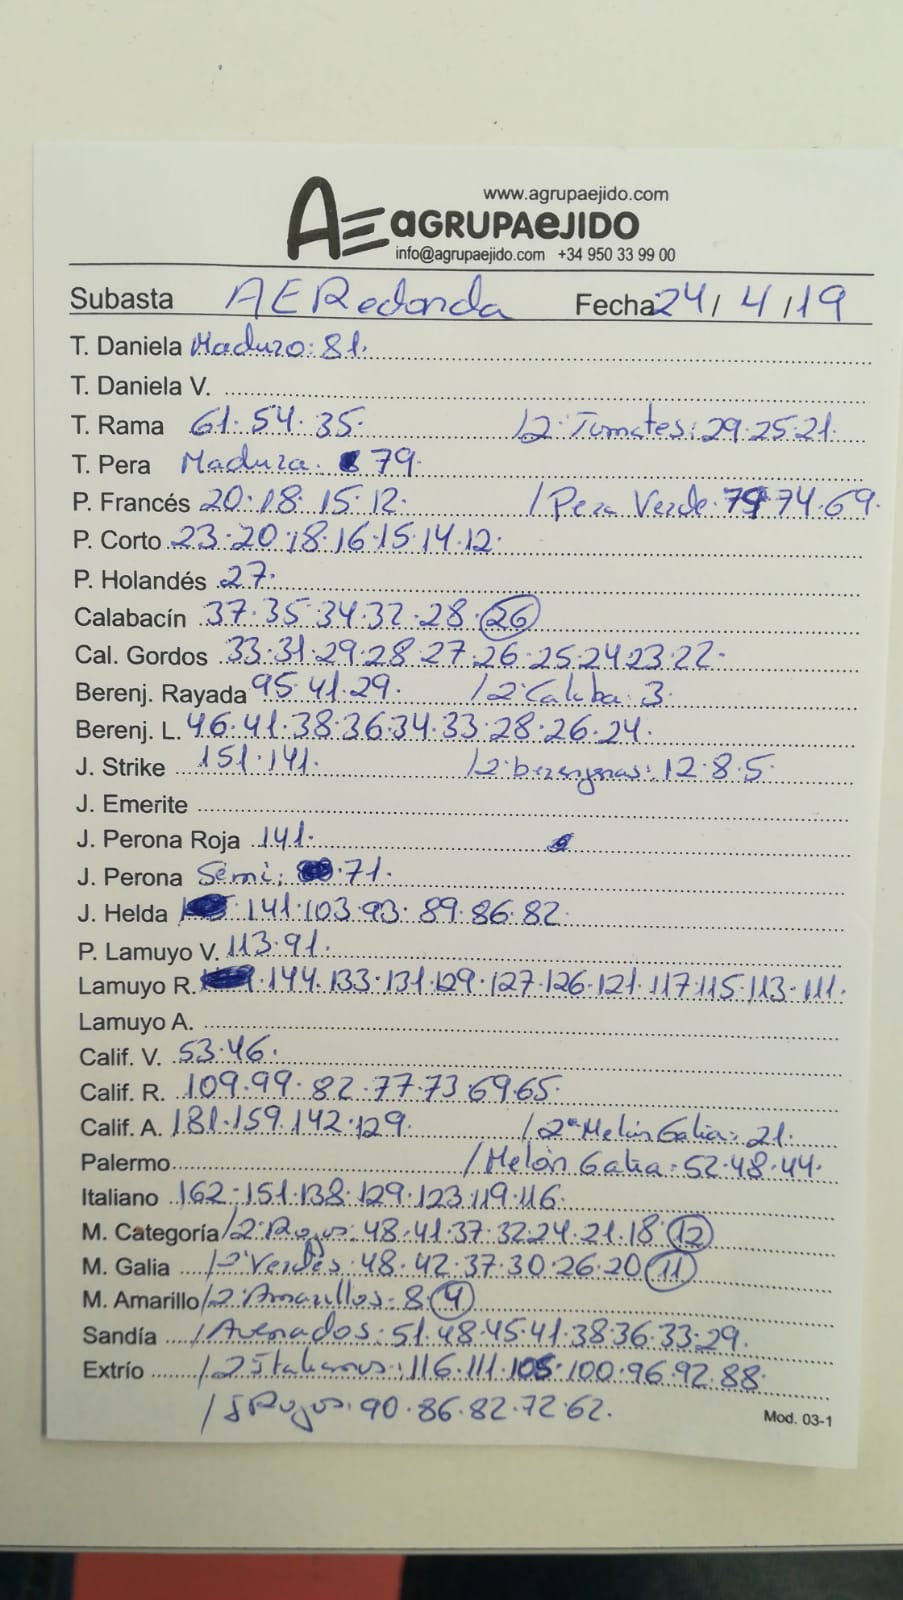 www.agrupaejido.com
AE aGRUPAeJIDO
info@agrupaejido.com +34 950 33 99 00
Subasta AERedonda Fecha 24/4/19
T. Daniela Maduro: 81.
T. Daniela V.
T. Rama 61.54.35. /2ª Tomates: 29.25.21.
T. Pera Madura. 79.
P. Francés 20.18.15.12. /Pera Verde. 79.74.69.
P. Corto 23.20.18.16.15.14.12.
P. Holandés 27.
Calabacín 37.35.34.32.28.26
Cal. Gordos 33.31.29.28.27.26.25.24.23.22.
Berenj. Rayada 95.41.29. /2ª Calaba. 3.
Berenj. L. 46.41.38.36.34.33.28.26.24.
J. Strike 151.141. /2ª berenjenas: 12.8.5.
J. Emerite
J. Perona Roja 141.
J. Perona Semi: 71.
J. Helda 141.103.93.89.86.82.
P. Lamuyo V. 113.91.
Lamuyo R. 144.133.131.129.127.126.121.117.115.113.111.
Lamuyo A.
Calif. V. 53.46.
Calif. R. 109.99.82.77.73.69.65.
Calif. A. 181.159.142.129. /2ª Melón Galia: 21.
Palermo /Melón Galia: 52.48.44.
Italiano 162.151.138.129.123.119.116.
M. Categoría /2ª Rojos: 48.41.37.32.24.21.18.12
M. Galia /2ª Verdes: 48.42.37.30.26.20.11
M. Amarillo /2ª Amarillos: 8.4
Sandía /Asurcados: 51.48.45.41.38.36.33.29.
Extrío /2ª Italianos: 116.111.105.100.96.92.88.
/ Rojos: 90.86.82.72.62.
Mod. 03-1